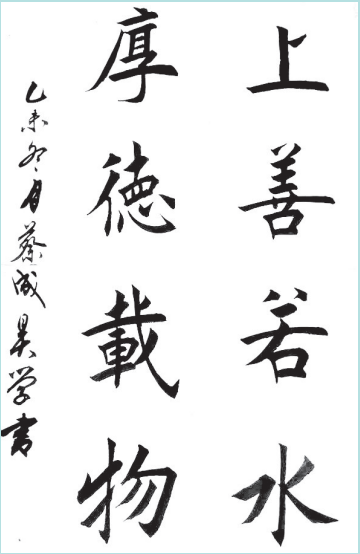 上善若水
厚德載物
乙未冬月蔡成昊学书